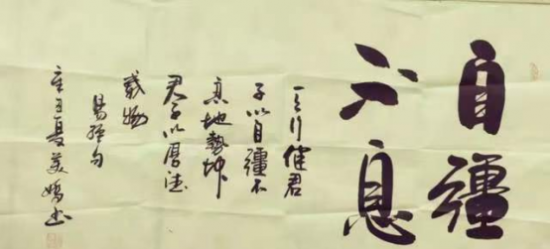 自彊
不息
天行健君
子以自彊不
息地勢坤
君子以厚德
載物
易經句
辛丑夏美嬌书